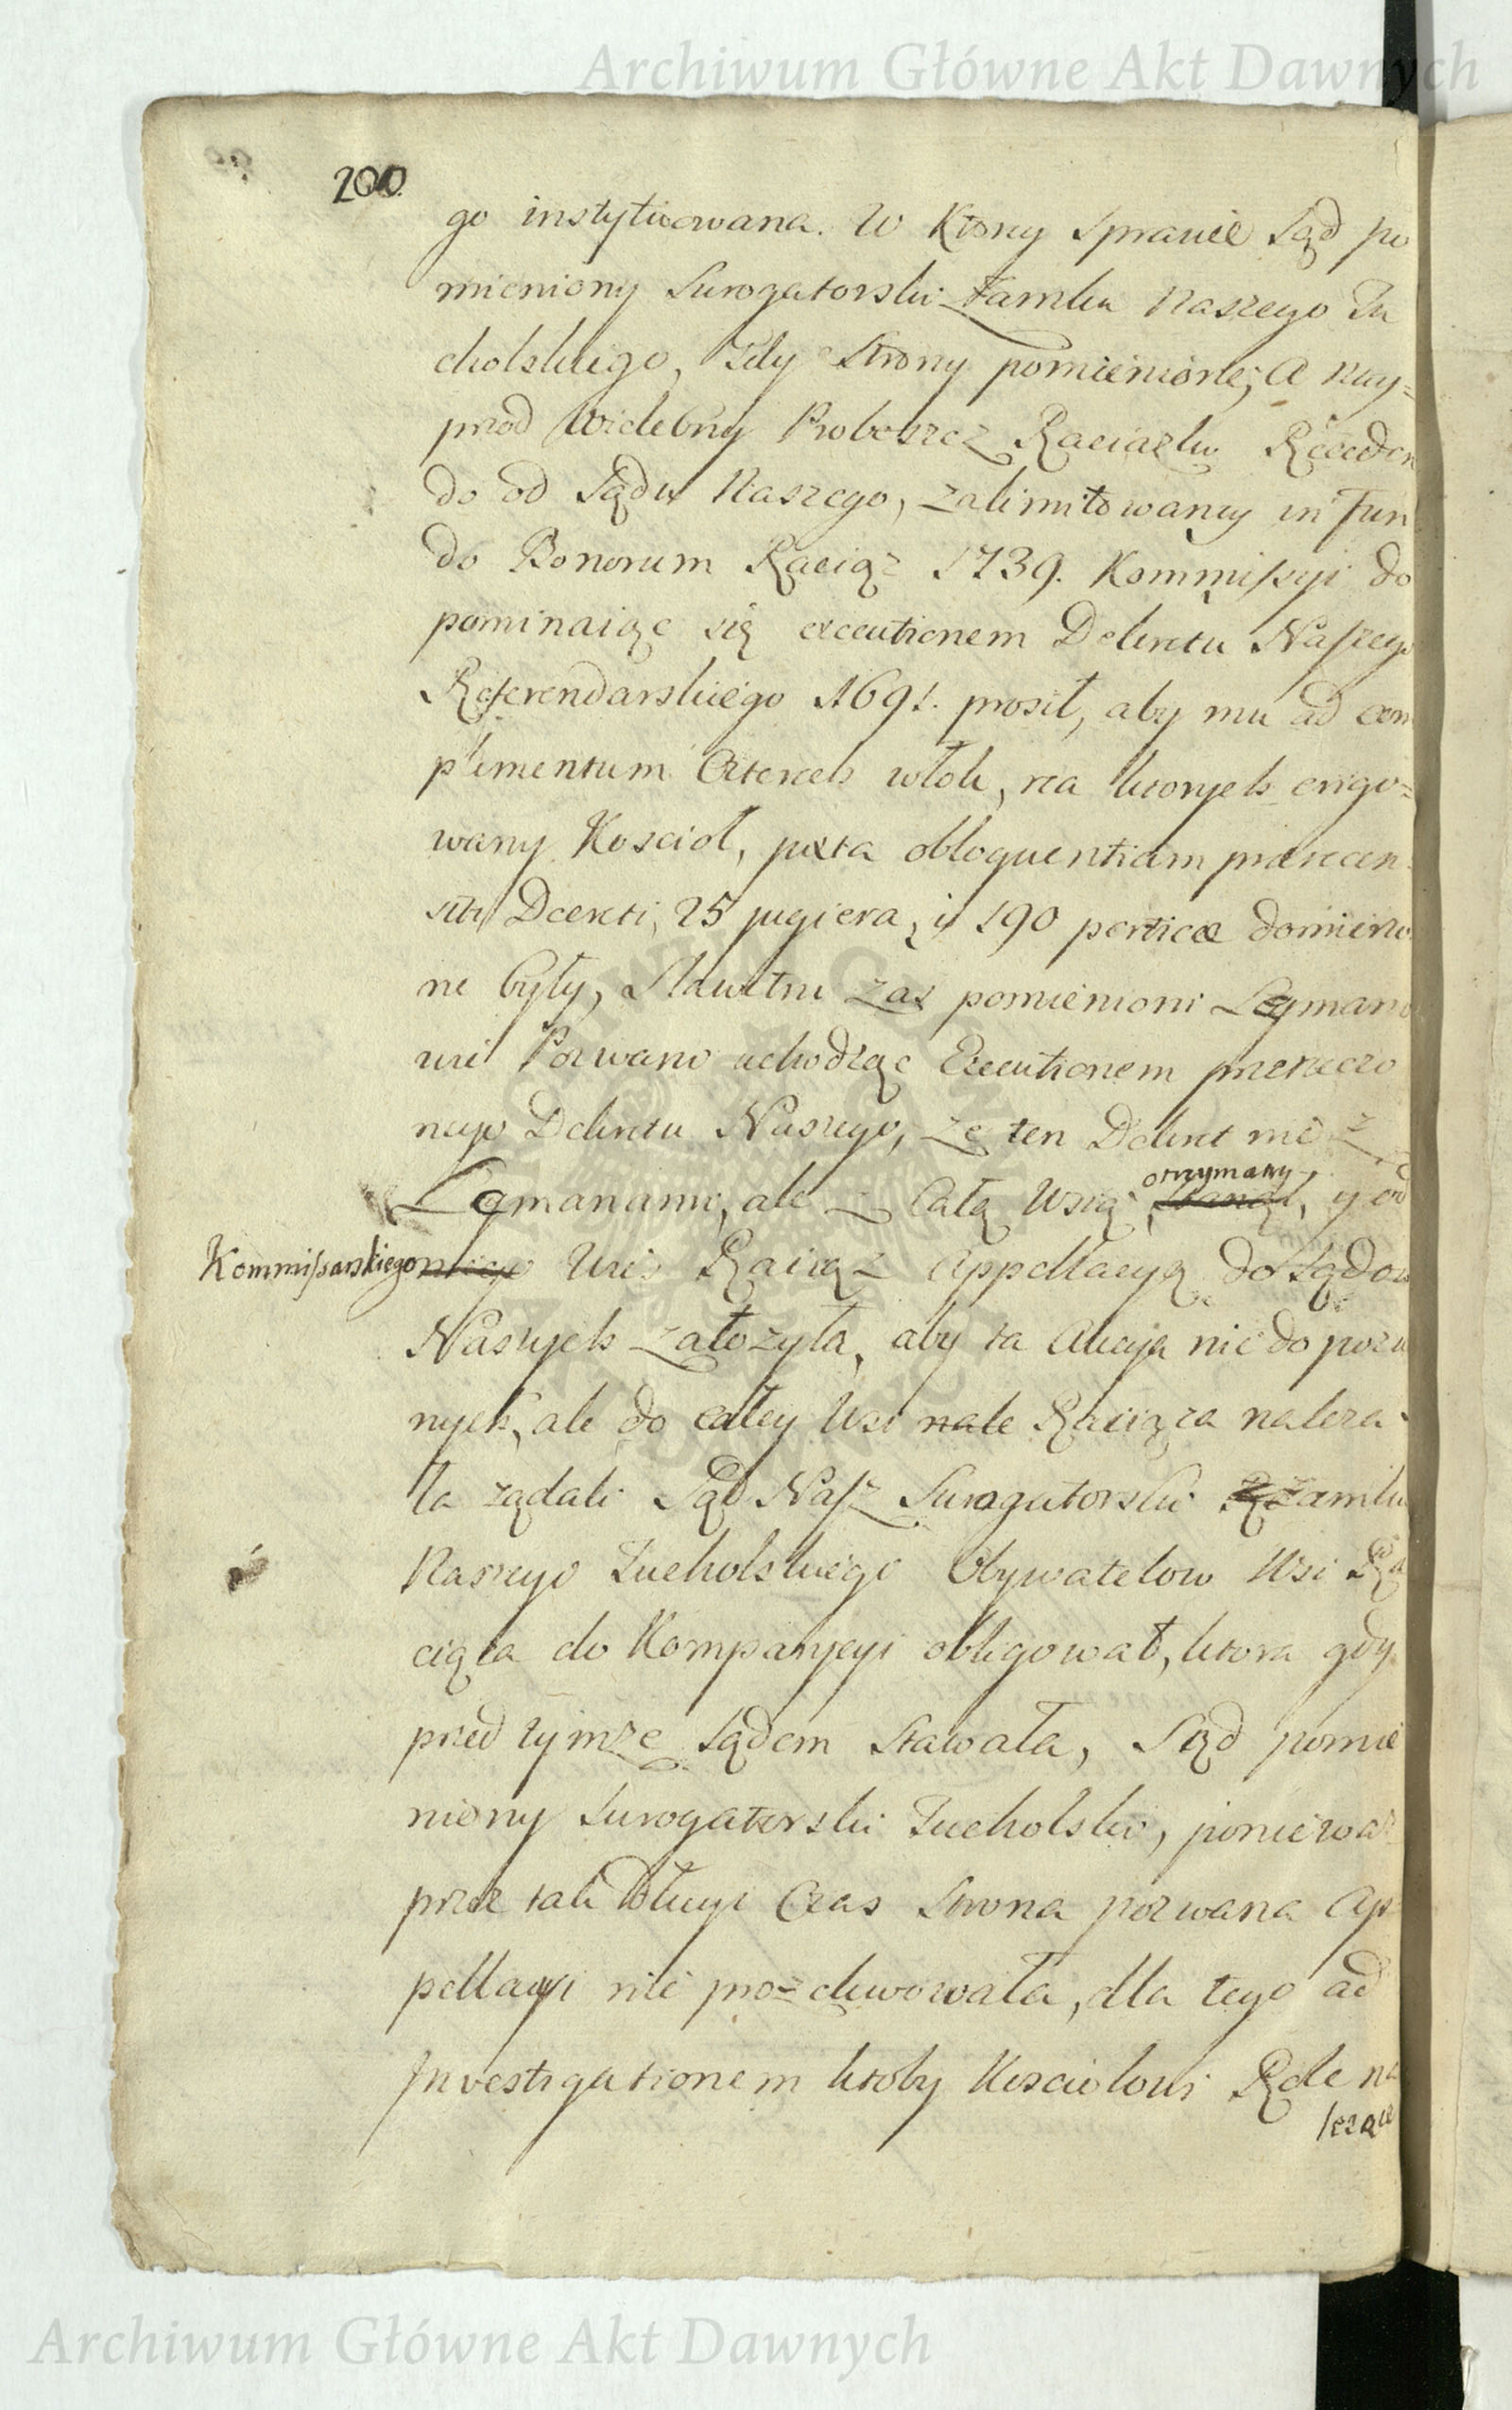 Archiwum Główne Akt Dawnych
200
go instytuowana. W Ktory Sprawie Sąd po
mieniony Surogatorski Zamku Naszego Tu
cholskiego, Zdy Strony pomienione; A nay=
przod Wielebny Proboszcz Raciązki Receden
do od Sądu Naszego, zalimitowaney in Fun
do Bonorum Raciąz 1739. Kommissyi do
pominaiąc się executionem Dekretu Naszego
Referendarskiego 1691. prosił, aby mu ad com
plementum Czterech włok, na ktorych erigo=
wany Koscioł, juxta obloquentiam praecen
siti Decreti, 25 jugiera, y 190 perticæ domierzo
ne były, Sławetni zas pomienioni Leymano
wie Pozwani uchodząc Executionem przerzeczo
nego Dekretu Naszego, ze ten Dekret nie z
Lemanami, ale z Całą Wsią, otrzymany, y od
Kommissarskiego Wies Raiąz Appellacyą do Sądow
Naszych załozyła, aby ta Akcyja nie do pozwa
nych, ale do całey Wsi nale Raciąza naleza
ła ządali Sąd Nasz Surogatorski Zamku
Naszego Tucholskiego Obywatelow Wsi Ra
ciąza do Kompanycyi obligował, ktora gdy
przed tymze Sądem Stawała, Sąd pomie
niony Surogatorski Tucholski, poniewaz
przez tak długi Czas Strona pozwana Ap
pellacyi nie prozekwowała, dla tego ad
Investigationem ktoby Kosciołowi Role na
lezące
Archiwum Główne Akt Dawnych